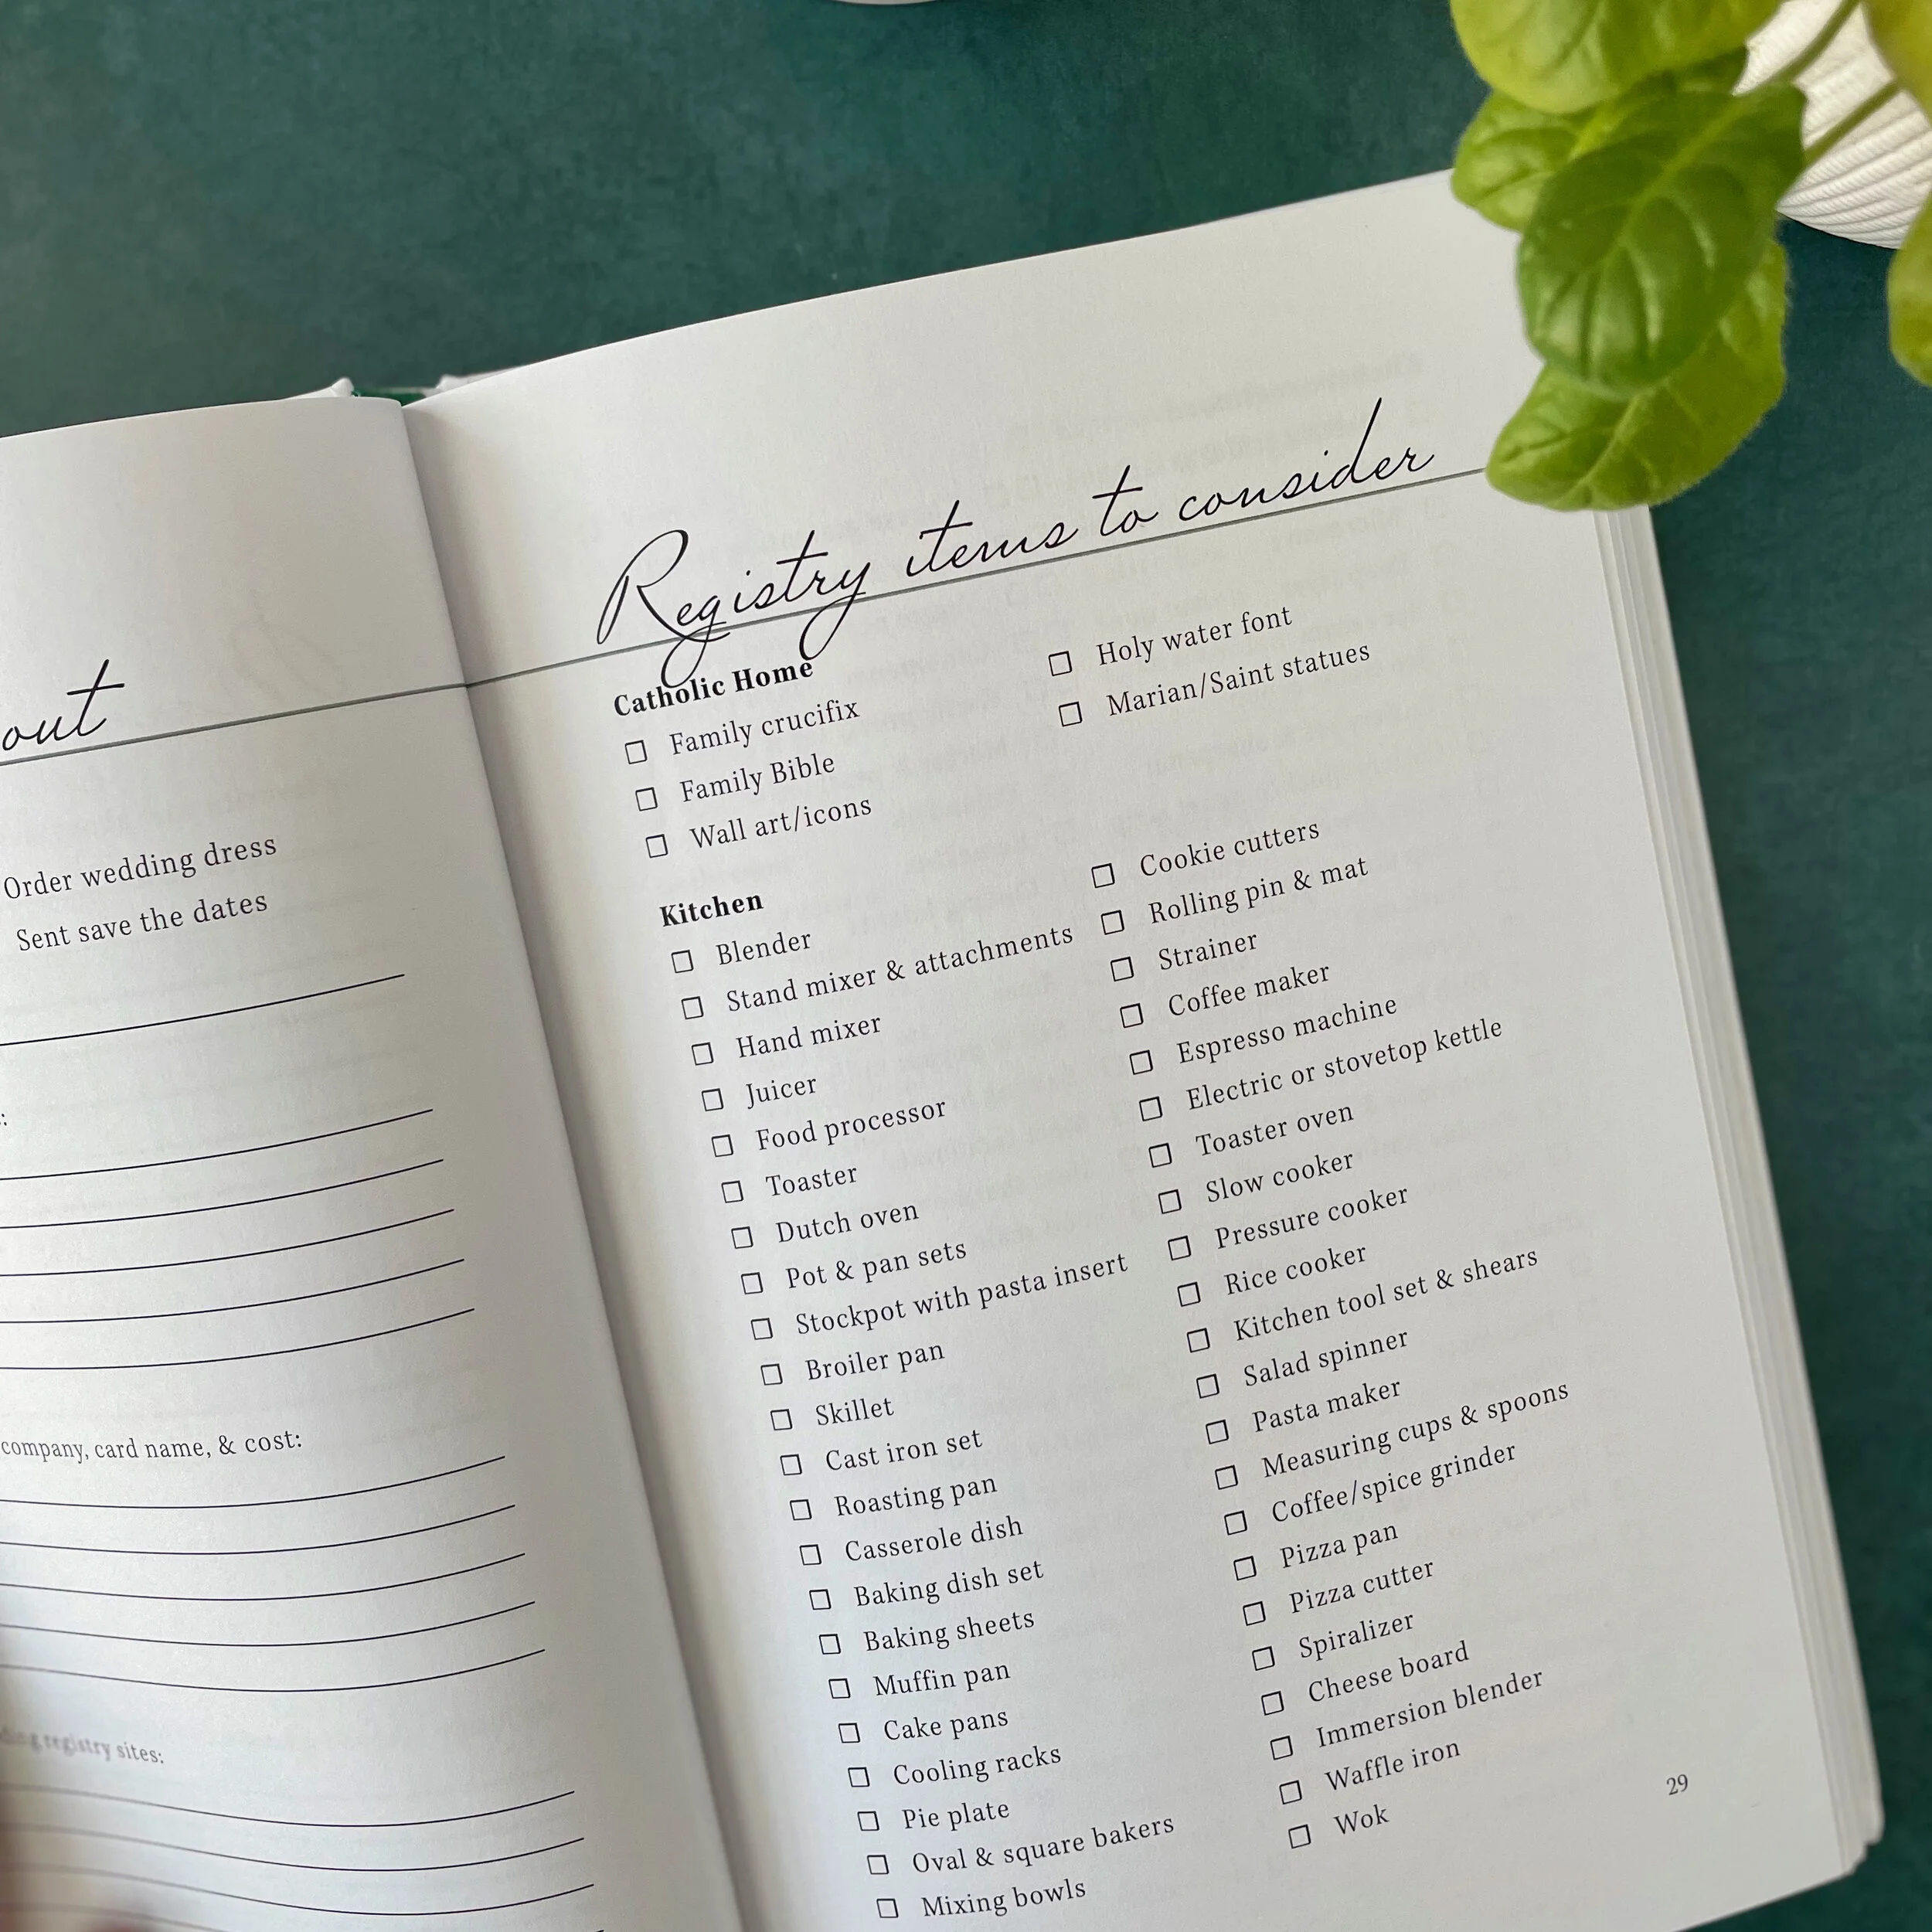 out
Order wedding dress
Sent save the dates
company, card name, & cost:
registry sites:
Registry items to consider
Catholic Home
Family crucifix
Family Bible
Wall art/icons
Holy water font
Marian/Saint statues
Kitchen
Blender
Stand mixer & attachments
Hand mixer
Juicer
Food processor
Toaster
Dutch oven
Pot & pan sets
Stockpot with pasta insert
Broiler pan
Skillet
Cast iron set
Roasting pan
Casserole dish
Baking dish set
Baking sheets
Muffin pan
Cake pans
Cooling racks
Pie plate
Oval & square bakers
Mixing bowls
Cookie cutters
Rolling pin & mat
Strainer
Coffee maker
Espresso machine
Electric or stovetop kettle
Toaster oven
Slow cooker
Pressure cooker
Rice cooker
Kitchen tool set & shears
Salad spinner
Pasta maker
Measuring cups & spoons
Coffee/spice grinder
Pizza pan
Pizza cutter
Spiralizer
Cheese board
Immersion blender
Waffle iron
Wok
29